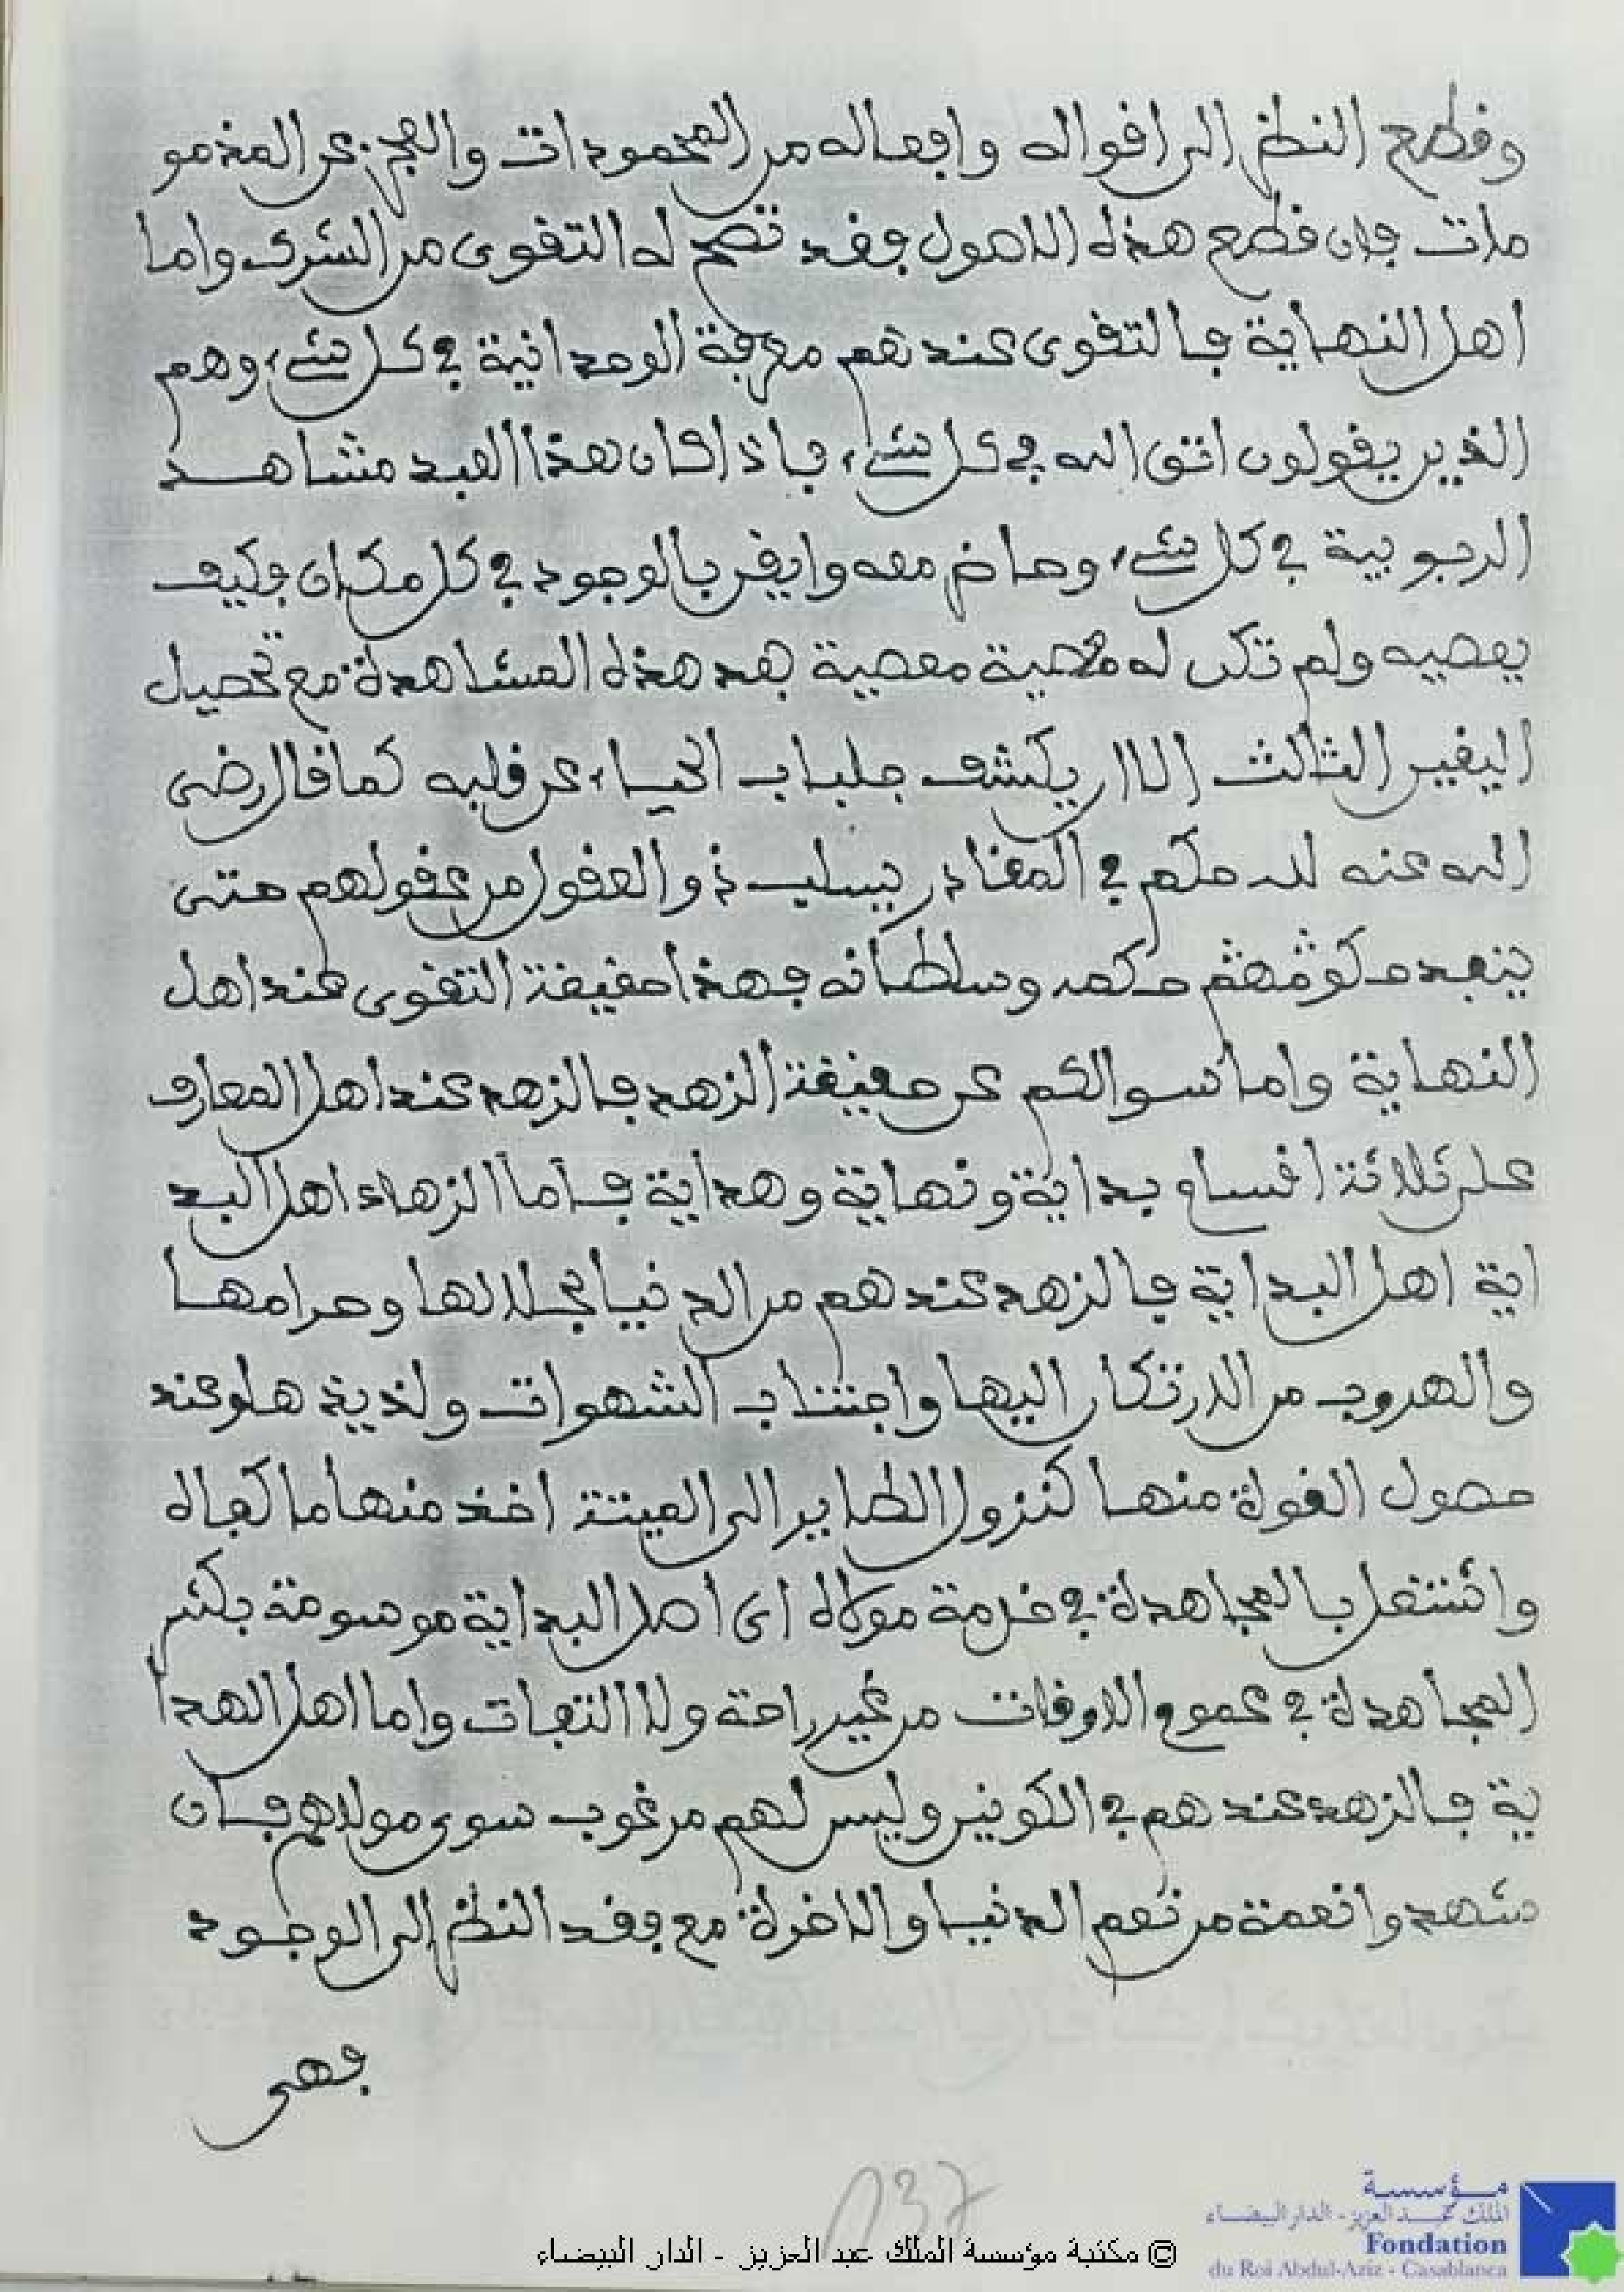 وقطع النظر الى اقواله وافعاله من المحمودات والعجز عن المذمو
مات فان قطع هذه الاصول فقد تصح له التقوى من الشرك واما
اهل النهاية فالتقوى عندهم معرفة الوحدانية في كل شيء وهم
الذين يقولون اتق الله في كل شيء فاذا كان هذا العبد مشاهد
الربوبية في كل شيء وحاضر معه وايقن بالوجود في كل مكان فكيف
يعصيه ولم تكن له معصية بعد هذه المشاهدة مع تحصيل
اليقين الثالث الا ان يكشف جلباب الحياء عن قلبه كما قال رضي
الله عنه لله حكم في المقادر يسلب ذو العقول من عقولهم حتى
ينفد حكمه وسلطانه فهذا حقيقة التقوى عند اهل
النهاية واما سوالكم عن حقيقة الزهد فالزهد عند اهل المعارف
على ثلاثة اقسام بداية ونهاية وهداية فاما الزهاد اهل البد
اية اهل البداية فالزهد عندهم من الدنيا بحلالها وحرامها
والهروب من الارتكان اليها واجتناب الشهوات ولذيذ عند
حصول القوة منها كنزول الطاير الى الميتة اخذ منها ما كفاه
واشتغل بالمجاهدة في خدمة مولاه اي اصل البداية موسومة بكثر
المجاهدة في عموم الاوقات من غير راحة ولا التفات واما اهل الهدا
ية فالزهد عندهم في الكونين وليس لهم مرغوب سوى مولاهم فان
شهدوا نعمة من نعم الدنيا والاخرة مع فقد النظر الى الوجود
فهي
137
© مكتبة مؤسسة الملك عبد العزيز - الدار البيضاء
مؤسسة
الملك عبد العزيز - الدار البيضاء
Fondation
du Roi Abdul-Aziz - Casablanca